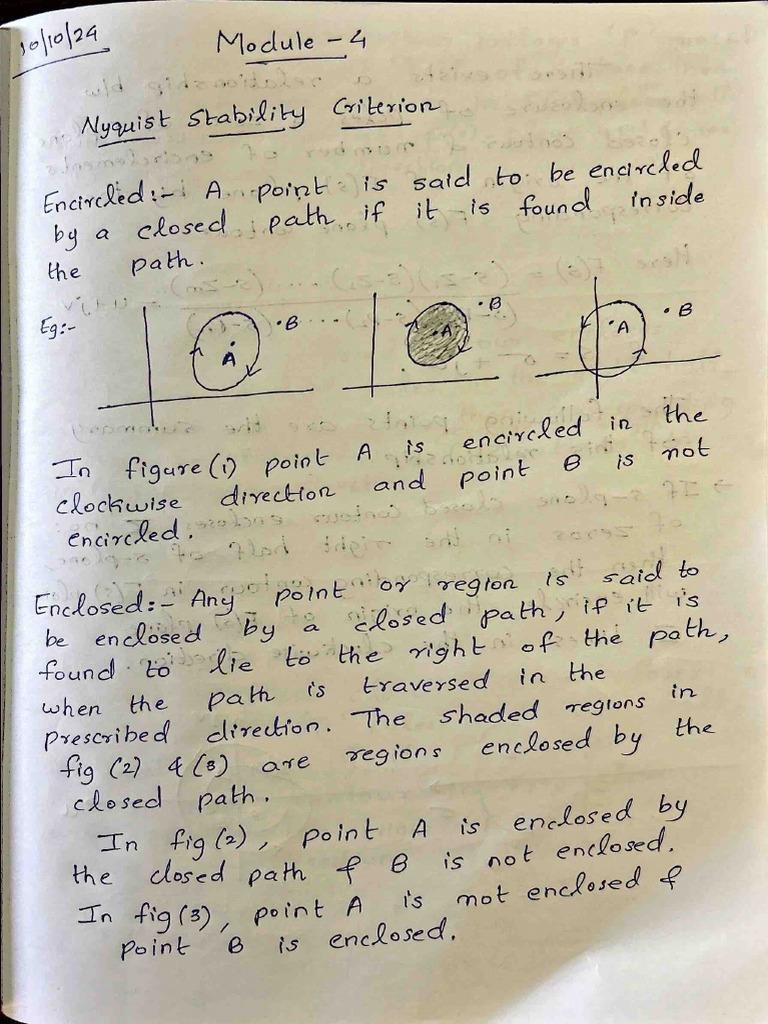 10/10/24
Module - 4
Nyquist Stability Criterion
Encircled:- A point is said to be encircled
by a closed path if it is found inside
the path.
Eg:-
A
B
A
B
A
B
In figure (1) point A is encircled in the
clockwise direction and point B is not
encircled.
Enclosed:- Any point or region is said to
be enclosed by a closed path, if it is
found to lie to the right of the path,
when the path is traversed in the
prescribed direction. The shaded regions in
fig (2) & (3) are regions enclosed by the
closed path.
In fig (2), point A is enclosed by
the closed path & B is not enclosed.
In fig (3), point A is not enclosed &
point B is enclosed.